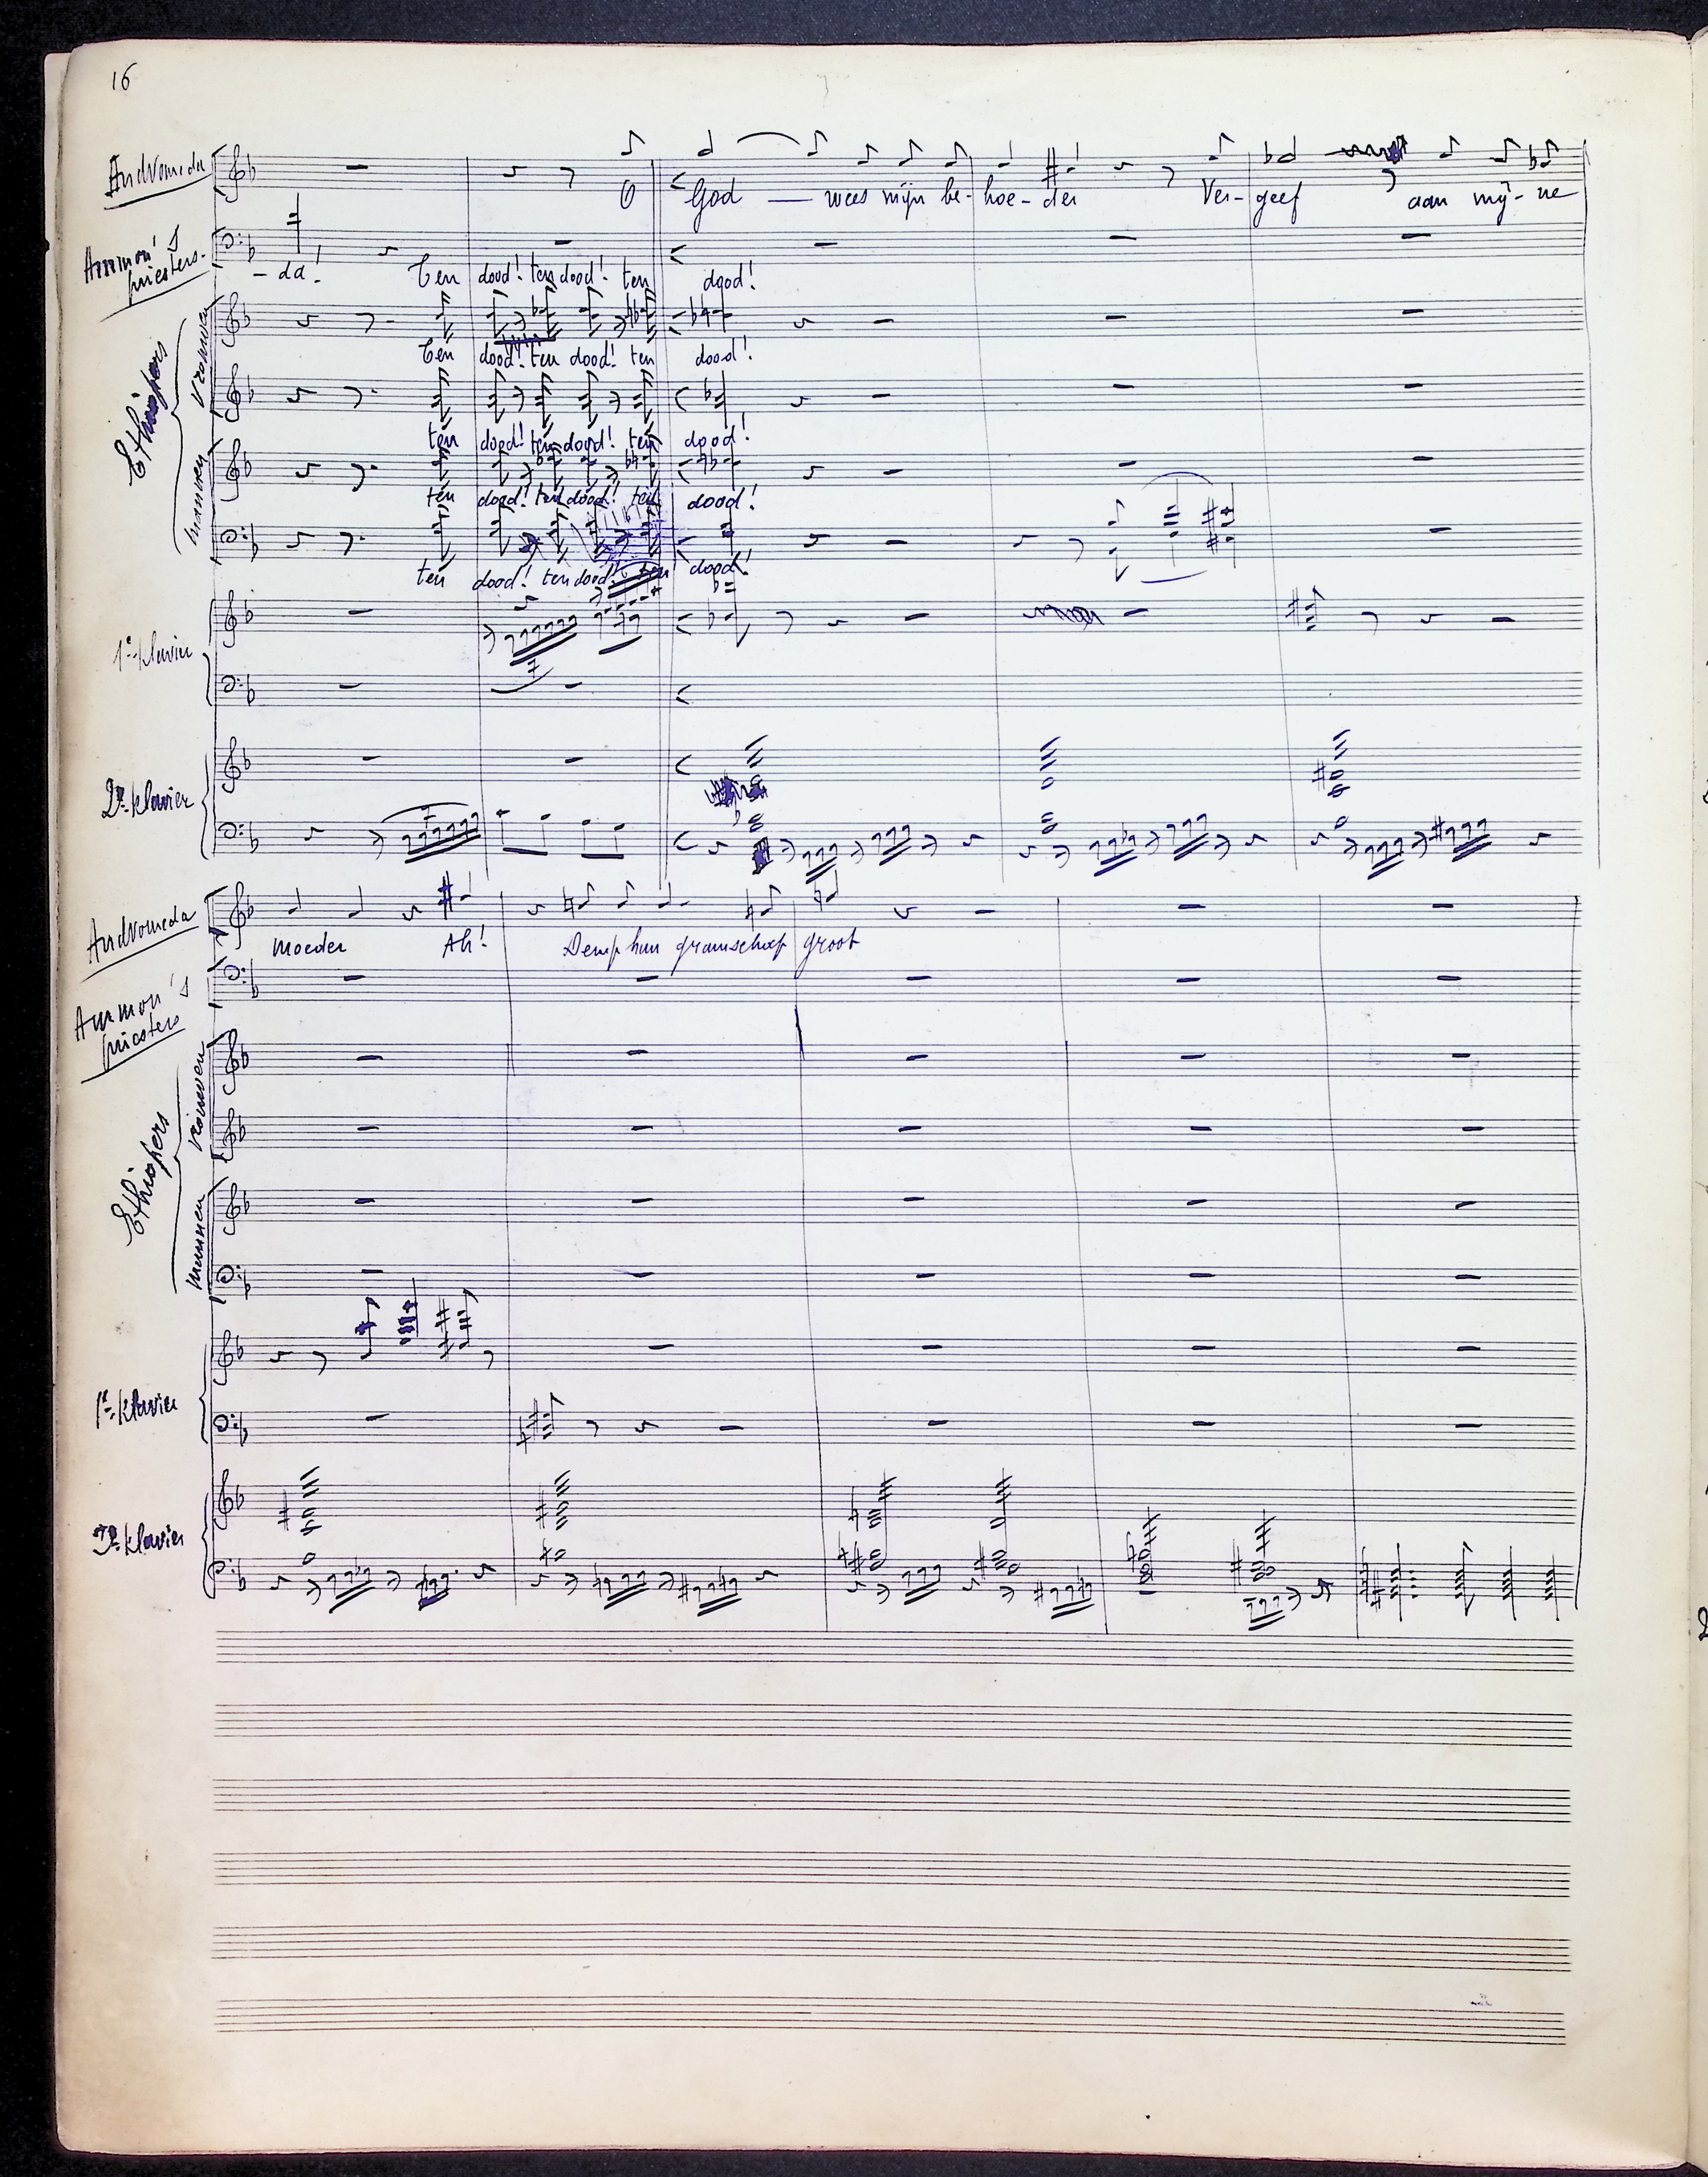 16
Andromeda
O God — wees mijn be- hoe- der Ver- geef aan mij- ne
Ammon's
priesters.
- da!
Ten dood! ten dood! ten dood!
Ethiopers
Vrouwen
Ten dood! ten dood! ten dood!
ten dood! ten dood! ten dood!
mannen
ten dood! ten dood! ten dood!
ten dood! ten dood! ten dood!
1e klavier
7
2e klavier
7
Andromeda
moeder Ah! Demp hun gramschap groot
Ammon's
priesters
Ethiopers
Vrouwen
mannen
1e klavier
2e klavier